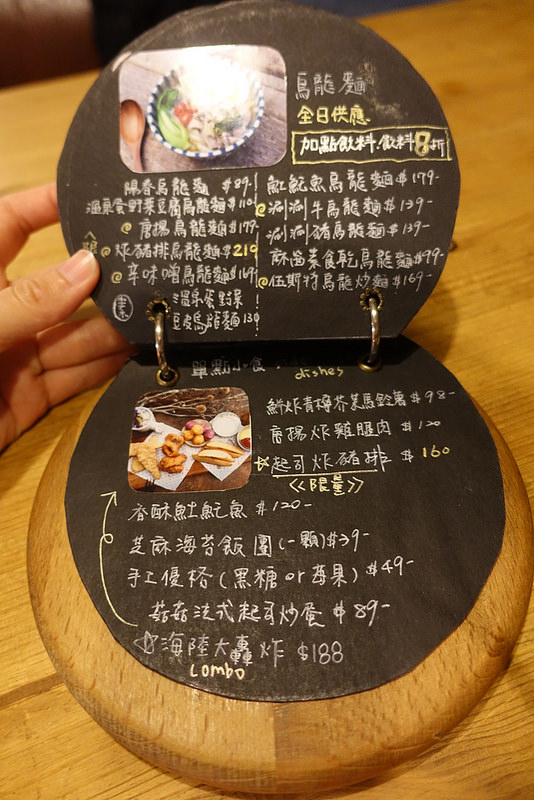 烏龍麵
全日供應
加點飲料.飲料8折
陽春烏龍麵 $89-
溫泉蛋野菜豆腐烏龍麵$110
唐揚烏龍麵$179
炸豬排烏龍麵$210
辛味噌烏龍麵$169
素 溫泉蛋野菜
豆皮烏龍麵130
魷魚烏龍麵$179-
涮涮牛烏龍麵$139-
涮涮豬烏龍麵$139-
麻醬菜食乾烏龍麵$99-
伍斯特烏龍炒麵$169-
單點小食
dishes
鮮炸青檸芥茉馬鈴薯$98-
唐揚炸雞腿肉 $120
起司炸豬排 $160
<<限量>>
香酥魷魚 $120-
芝麻海苔飯團(一顆)$39-
手工優格(黑糖or莓果)$49-
菇菇法式起司炒蛋 $89-
海陸大轟炸 $188
combo